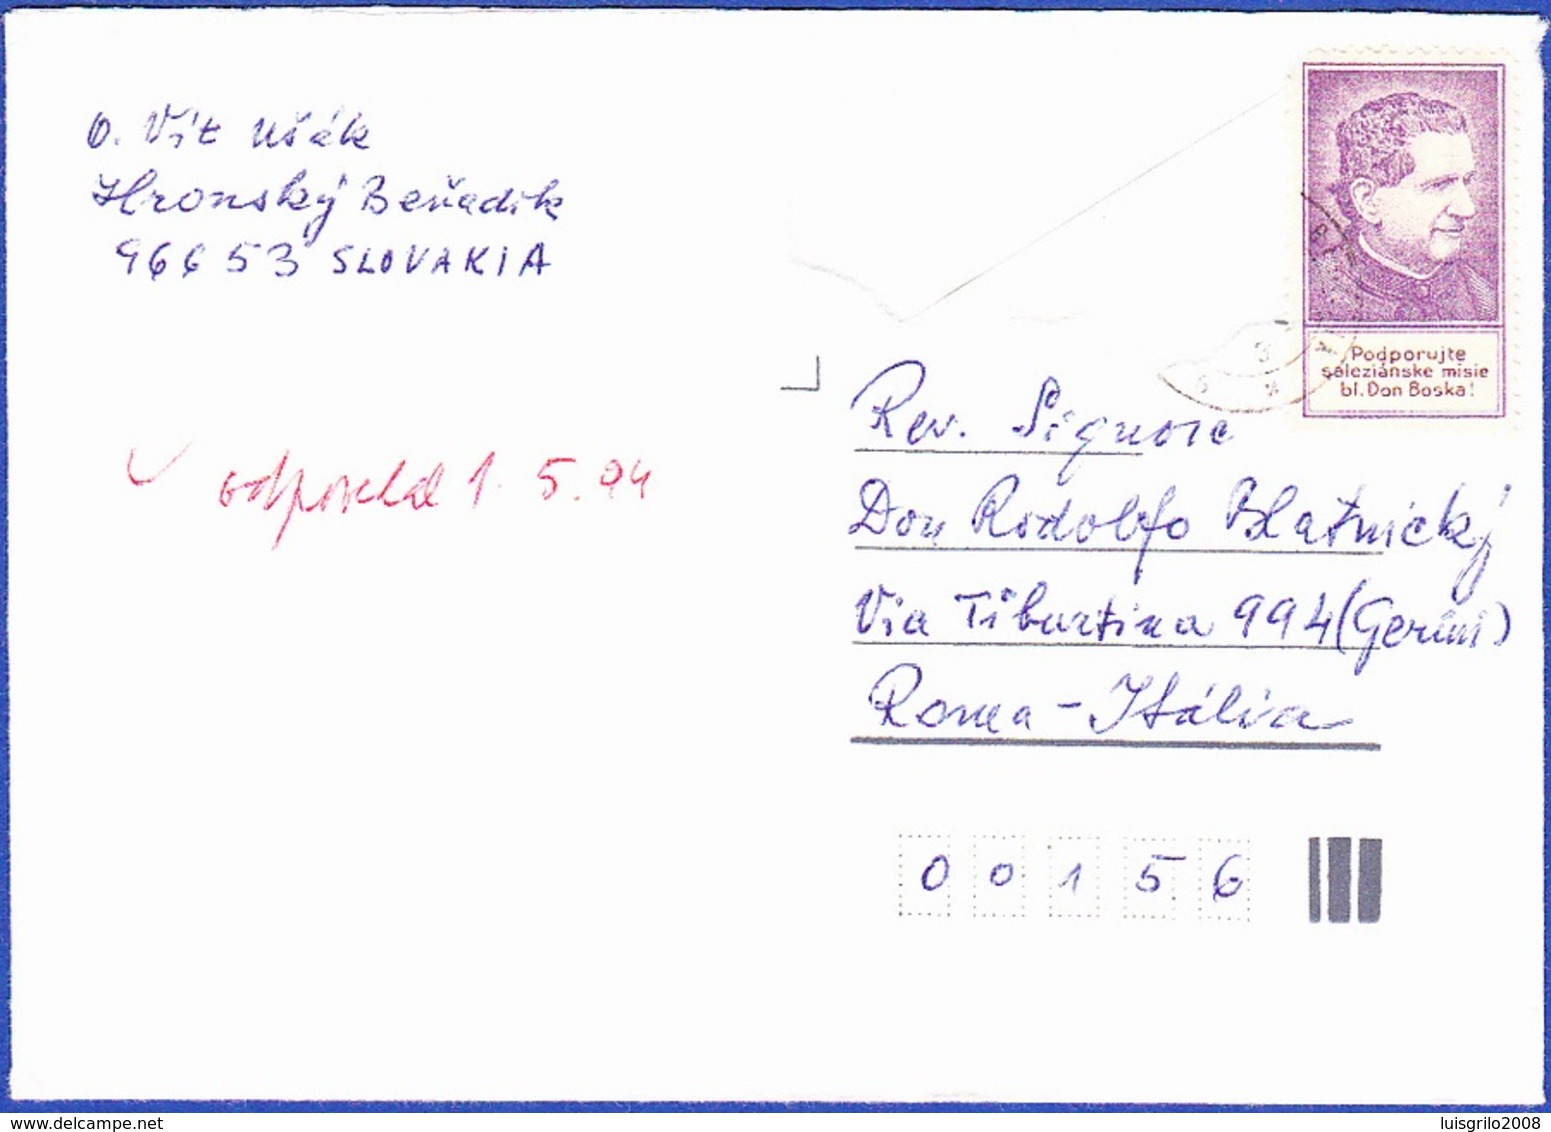 O. Vít Ušák
Hronský Beňadik
96653 SLOVAKIA
Podporujte
saleziánske misie
bl. Don Boska!
Rev. Signore
Don Rodolfo Blatnický
Via Tiburtina 994 (Gerini)
Roma - Itália
odpovedal 1. 5. 94
0 0 1 5 6
delcampe.net
luisgrilo2008